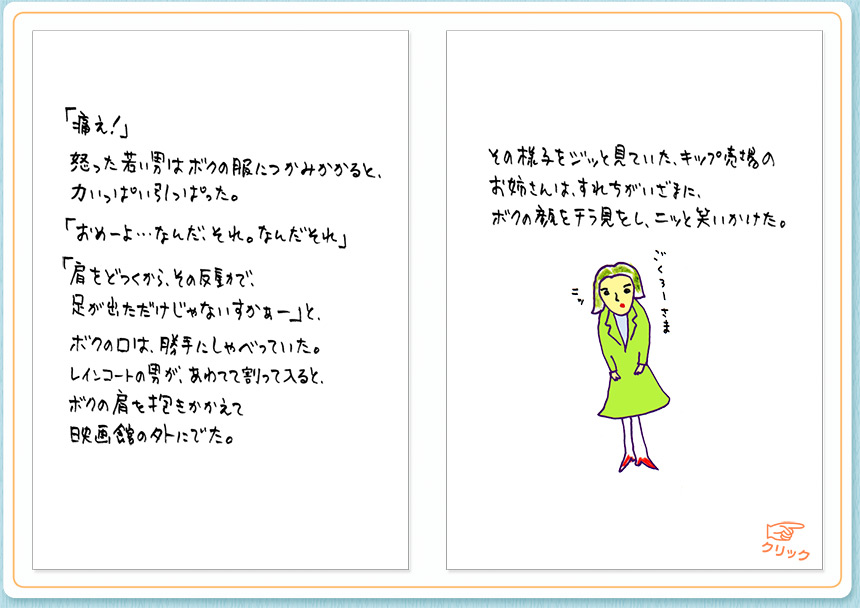 「痛え！」
怒った若い男はボクの服につかみかかると、
力いっぱい引っぱった。
「おめーよ…なんだ、それ。なんだそれ」
「肩をどつくから、その反動で、
足が出ただけじゃないすかぁー」と、
ボクの口は、勝手にしゃべっていた。
レインコートの男が、あわてて割って入ると、
ボクの肩を抱きかかえて
映画館の外にでた。
その様子をジッと見ていた、キップ売場の
お姉さんは、すれちがいざまに、
ボクの顔をチラ見をし、ニッと笑いかけた。
ごくろーさま
ニッ
クリック